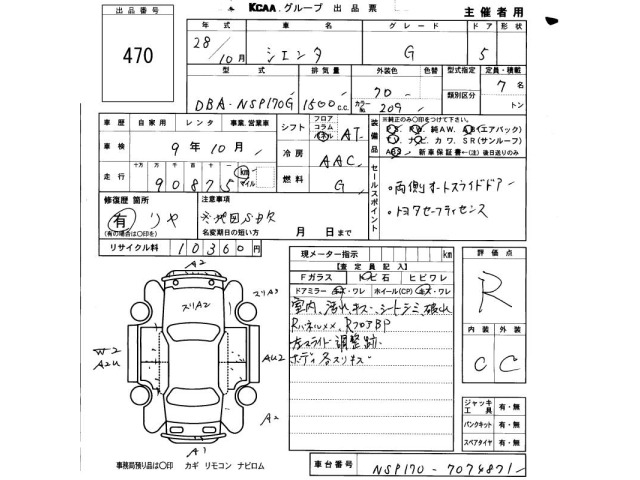 出品番号
470
KCAA グループ 出品票
主催者用
年式 車名 グレード ドア 形状
28/10月 シエンタ G 5
型式 排気量 外装色 色替 型式指定 定員・積載
DBA-NSP170G 1500c.c. クロ カラーNo. 209 類別区分 7名
トン
車歴 自家用 レンタ 事業,営業車
車検 9年10月
走行 十万 万 千 百 十 一
90875 km マイル
シフト フロア コラム パネル AT
冷房 AAC
燃料 G
装備品
※純正のみ○印をつけて下さい。
PS. PW. 純AW. AB(エアバック)
TV. ナビ. カワ. SR(サンルーフ)
ABS. 新車保証書←(注)後日送りのみ
セールスポイント
・両側オートスライドドア
・トヨタセーフティセンス
修復歴 箇所
有 リヤ
(有の場合は○印を)
注意事項
※地図SD欠
名変期日の短い方 月 日まで
リサイクル料 10360円
現メーター指示 km
【査定員記入】
Fガラス トビ石 ヒビワレ
ドアミラー キズ・ワレ ホイール(CP) キズ・ワレ
室内、汚れキズ、シートシミ破れ
Rパネルメメ、RフロアBP
左スライド調整跡
ボディ各スリキズ
評価点
R
内装 外装
C C
A2
スリA2
スリA3
W2
A2U
AU2
A2
A1
ジャッキ 工具 有・無
パンクキット 有・無
スペアタイヤ 有・無
事務局預り品は○印 カギ リモコン ナビロム
車台番号 NSP170-7074871